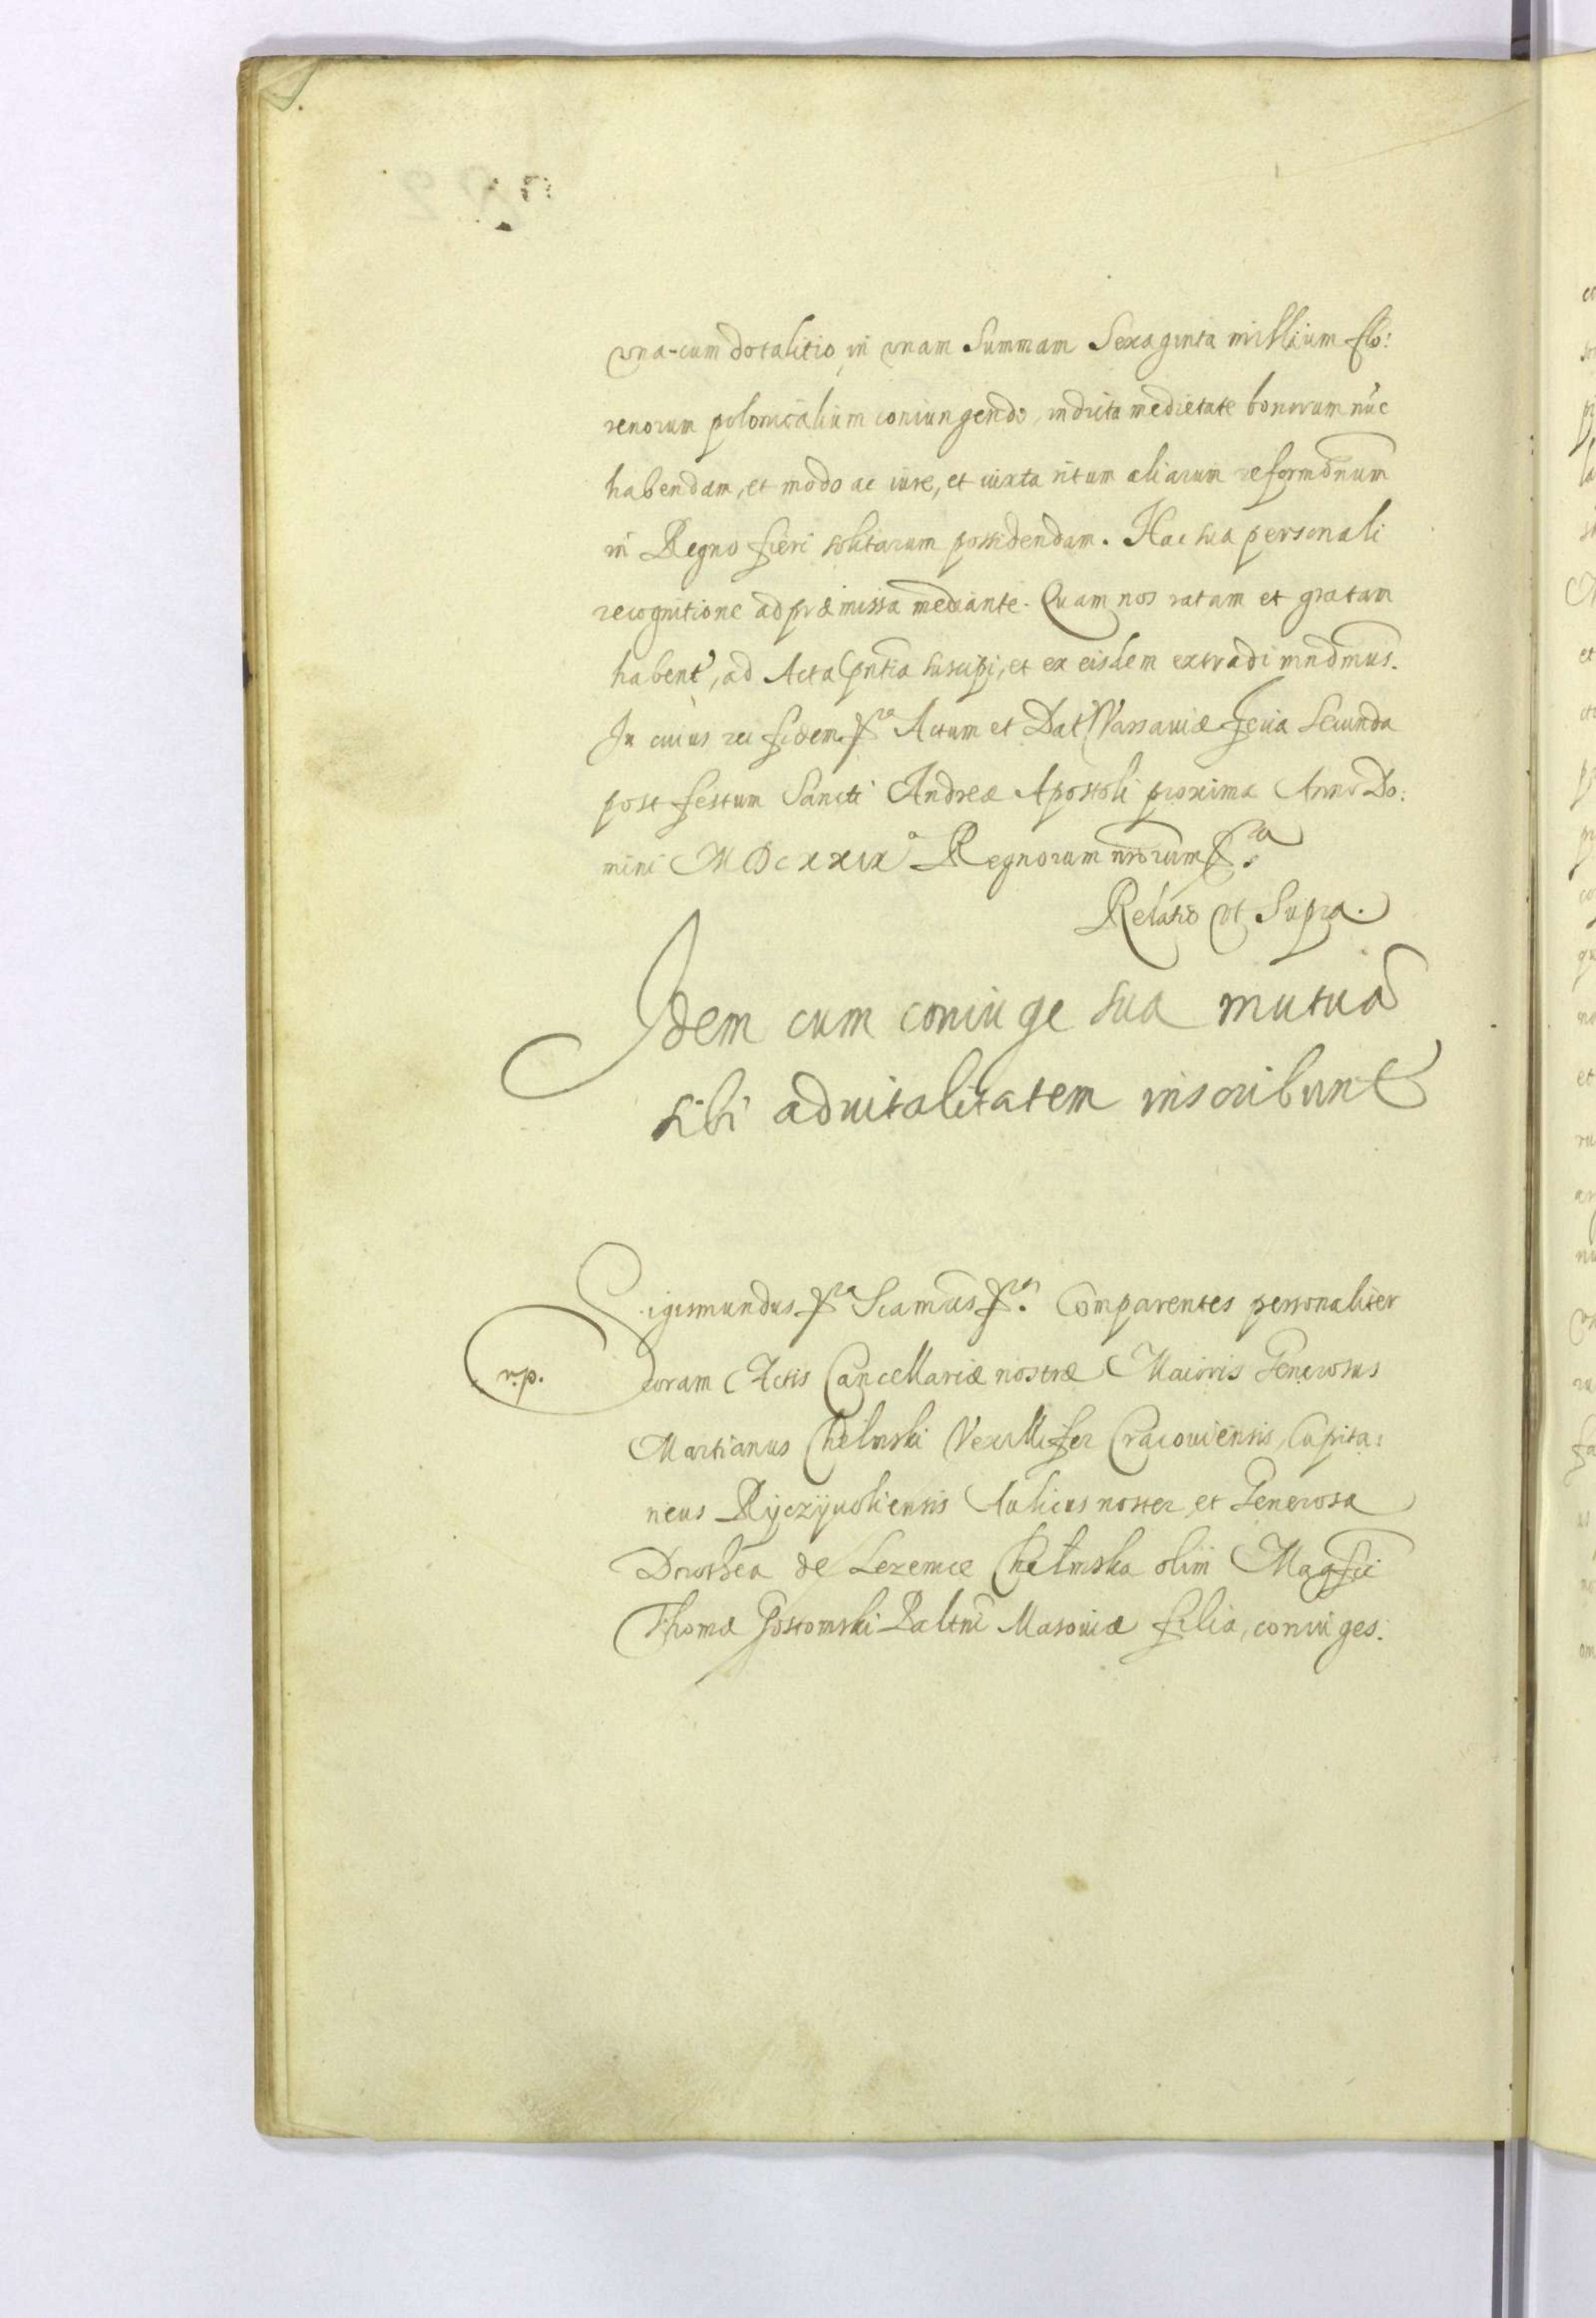 una-cum dotalitio, in unam Summam Sexaginta millium flo:
renorum polonicalium coniungendo, in dicta medietate bonorum nũc
habendam, et modo ac iure, et iuxta ritum aliarum reformõnum
in Regno fieri solitarum possidendam. Hac sua personali
recognitione ad præmissa mediante. Quam nos ratam et gratam
habent', ad Acta pñtia suscipi, et ex eisdem extradi mñdmus.
In cuius rei fidem &ra Actum et Dat Varsaviæ feria Secunda
post festum Sancti Andreæ Apostoli proxima Anno Do:
mini MDCXXIXo Regnorum nrorum &ra.
Relatio ut Supra.
Idem cum coniuge sua mutuã
sibi advitalitatem inscribunt
Sigismundus &ra Sciamus &ra. Comparentes personaliter
r.p.
coram Actis Cancellariæ nostræ Maioris Generosus
Martianus Chełmski Vexillifer Cracoviensis, Capita:
neus Ryczyvoliensis Aulicus noster, et Generosa
Dorothea de Lezenice Chełmska olim Magfci
Thomæ Gostomski Paltni Masoviæ filia, coniuges.